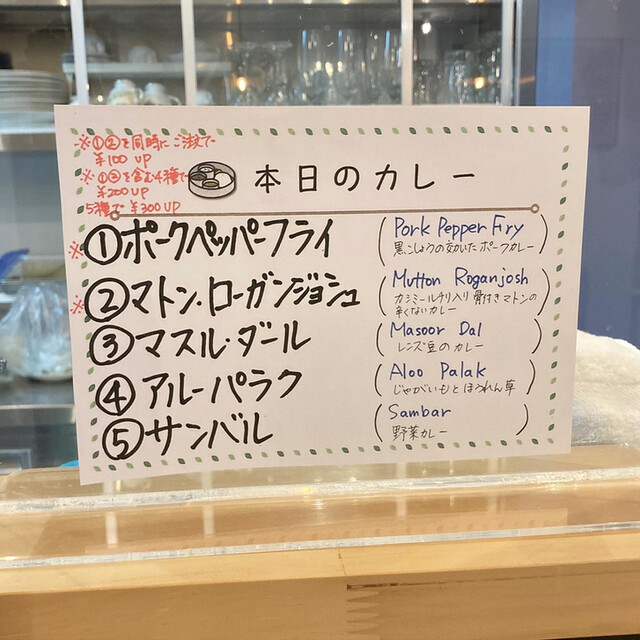 ※①②を同時にご注文で
¥100 UP
※①②を含む4種で
¥200 UP
5種で ¥300 UP
本日のカレー
※①ポークペッパーフライ
(Pork Pepper Fry
黒こしょうの効いたポークカレー)
※②マトン・ローガンジョシュ
(Mutton Roganjosh
カシミールチリ入り 骨付きマトンの
辛くないカレー)
③マスル・ダール
(Masoor Dal
レンズ豆のカレー)
④アルーパラク
(Aloo Palak
じゃがいもとほうれん草)
⑤サンバル
(Sambar
野菜カレー)